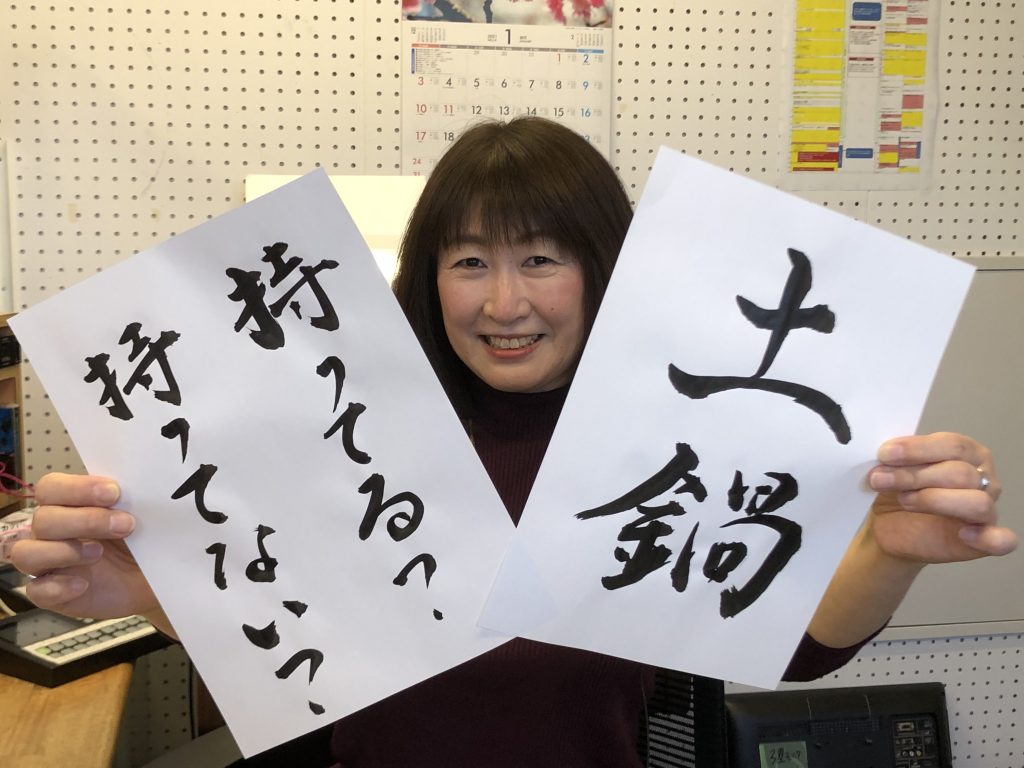 土鍋
持ってる?
持ってない?
1
1 2
3 4 5 6 7 8 9
10 11 12 13 14 15 16
17 18
24
31